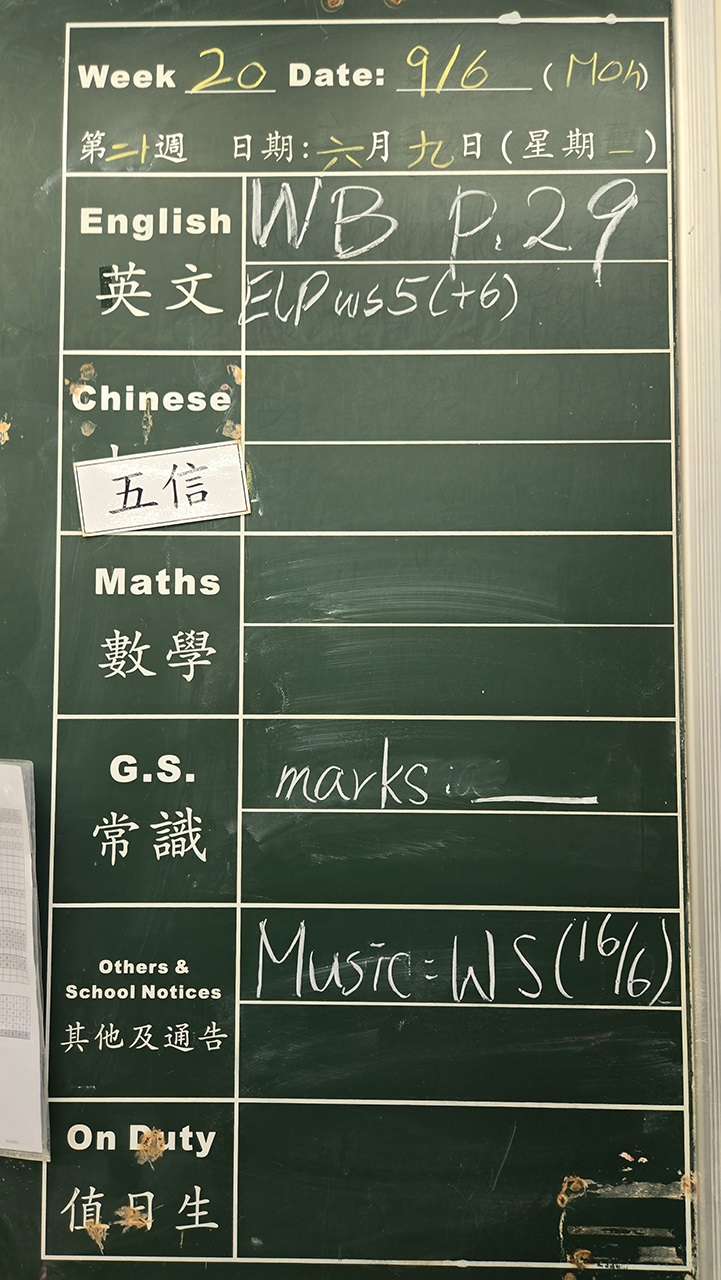 Week 20 Date: 9/6 (Mon)
第二十週 日期:六月九日(星期一)
English WB p.29
英文 ELP ws5(+6)
Chinese
五信
Maths
數學
G.S. marks: ___
常識
Others &
School Notices Music: WS(16/6)
其他及通告
On Duty
值日生